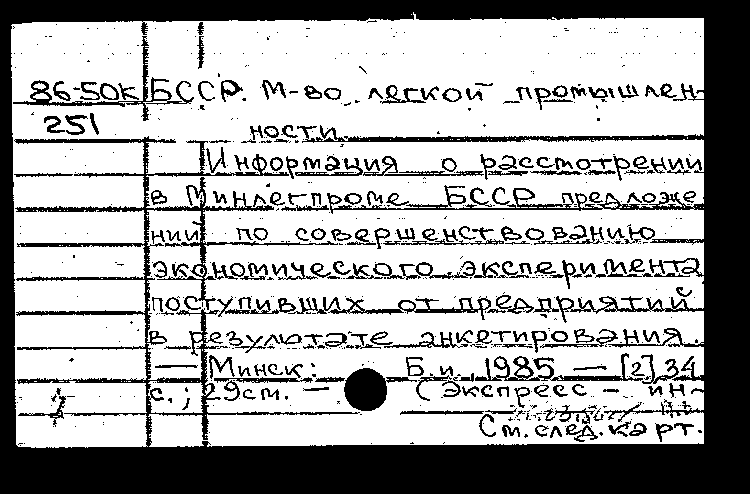 86-50к БССР. М-во легкой промышлен-
251 ности.
Информация о рассмотрении
в Минлегпроме БССР предложе
ний по совершенствованию
экономического эксперимента,
поступивших от предприятий
в результате анкетирования.
— Минск: Б.и., 1985. — [2] 34
с.; 29см. — (Экспресс - ин-
См. след. карт.